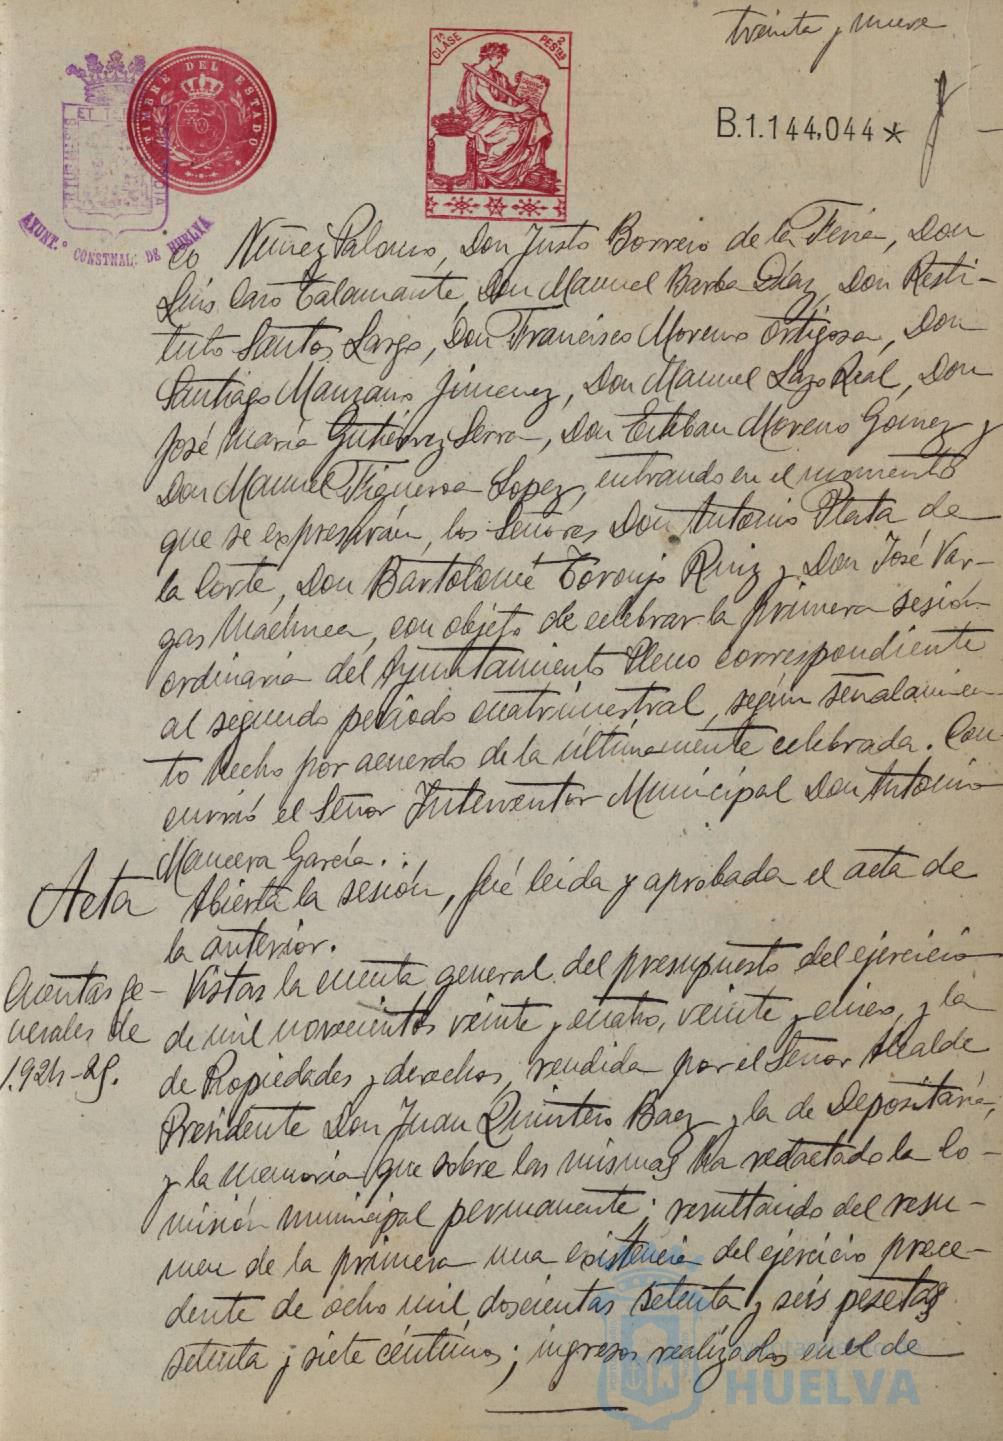 treinta y nueve
TIMBRE DEL ESTADO
7ª CLASE 2 PESTAS
B.1.144,044*
AYUNT.º CONSTNAL: DE HUELVA
co Núñez Palomo, Don Justo Borrero de la Feria, Don
Luis Caro Talamante, Don Manuel Barba Díaz, Don Resti-
tuto Santos Largo, Don Francisco Moreno Ortigosa, Don
Santiago Manzano Jimenez, Don Manuel Lazo Real, Don
José María Gutiérrez Serra, Don Esteban Moreno Gomez y
Don Manuel Figueroa Lopez, entrando en el momento
que se expresarán, los Señores Don Antonio Plata de
la Corte, Don Bartolomé Toronjo Ruiz y Don José Var-
gas Machuca, con objeto de celebrar la primera sesión
ordinaria del Ayuntamiento Pleno correspondiente
al segundo período cuatrimestral, según señalamien-
to hecho por acuerdo de la últimamente celebrada. Con-
currió el Señor Interventor Municipal Don Antonio
Mancera García.
Acta Abierta la sesión, fué leida y aprobada el acta de
la anterior.
Cuentas ge-
nerales de
1.924-25.
Vistas la cuenta general del presupuesto del ejercicio
de mil novecientos veinte y cuatro, veinte y cinco, y la
de Propiedades y derechos, rendida por el Señor Alcalde
Presidente Don Juan Quintero Baez y la de Depositaría,
y la memoria que sobre las mismas ha redactado la Co-
misión municipal permanente; resultando del resu-
men de la primera una existencia del ejercicio prece-
dente de ocho mil doscientas setenta y seis pesetas
setenta y siete céntimos; ingresos realizados en el de
HUELVA